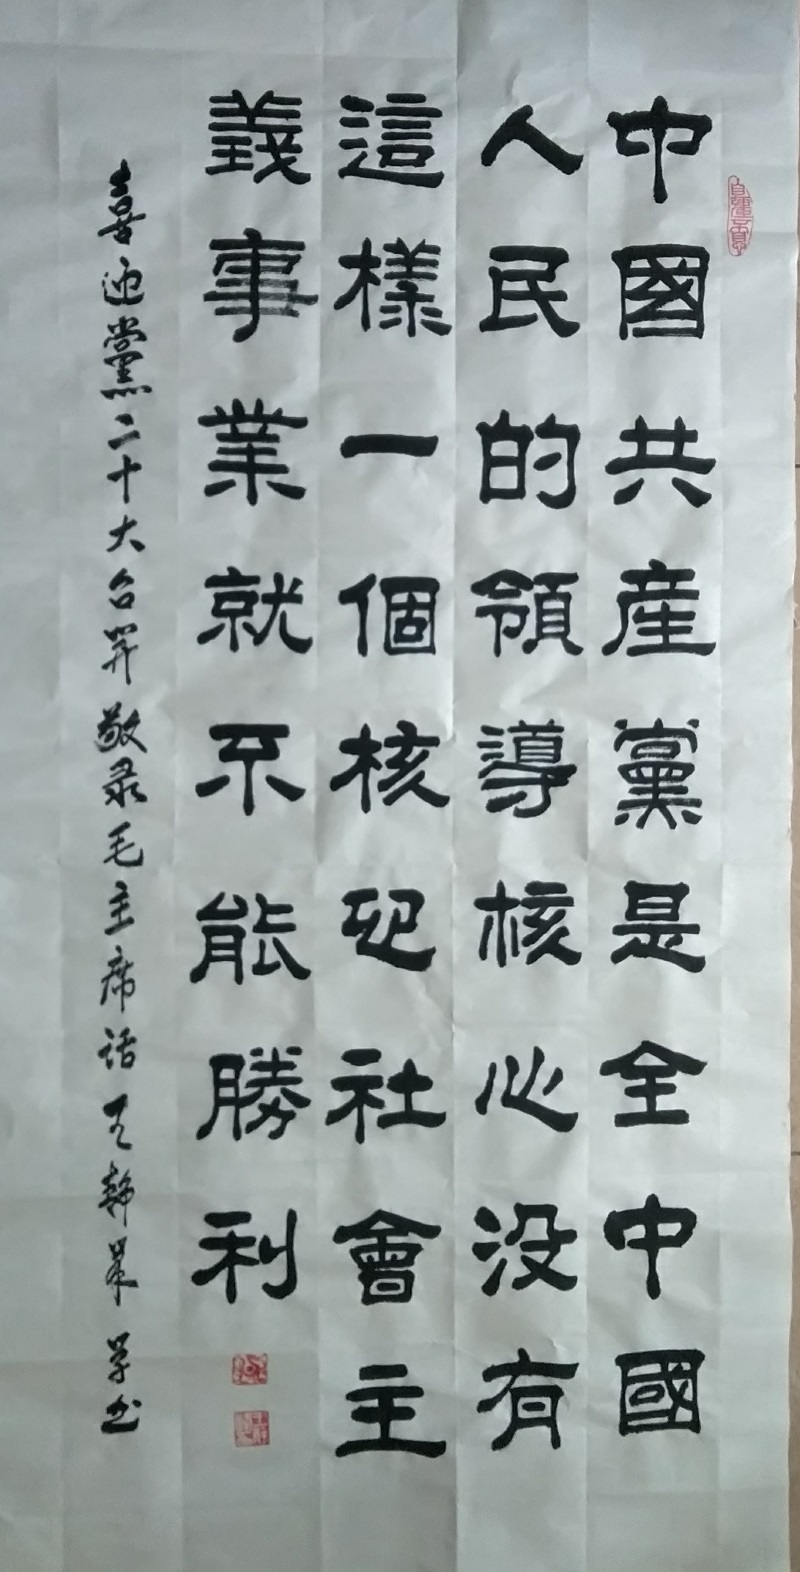 中國共産黨是全中國
人民的領導核心没有
這樣一個核社會主
義事業就不能勝利
喜迎黨二十大召开敬录毛主席话王学书